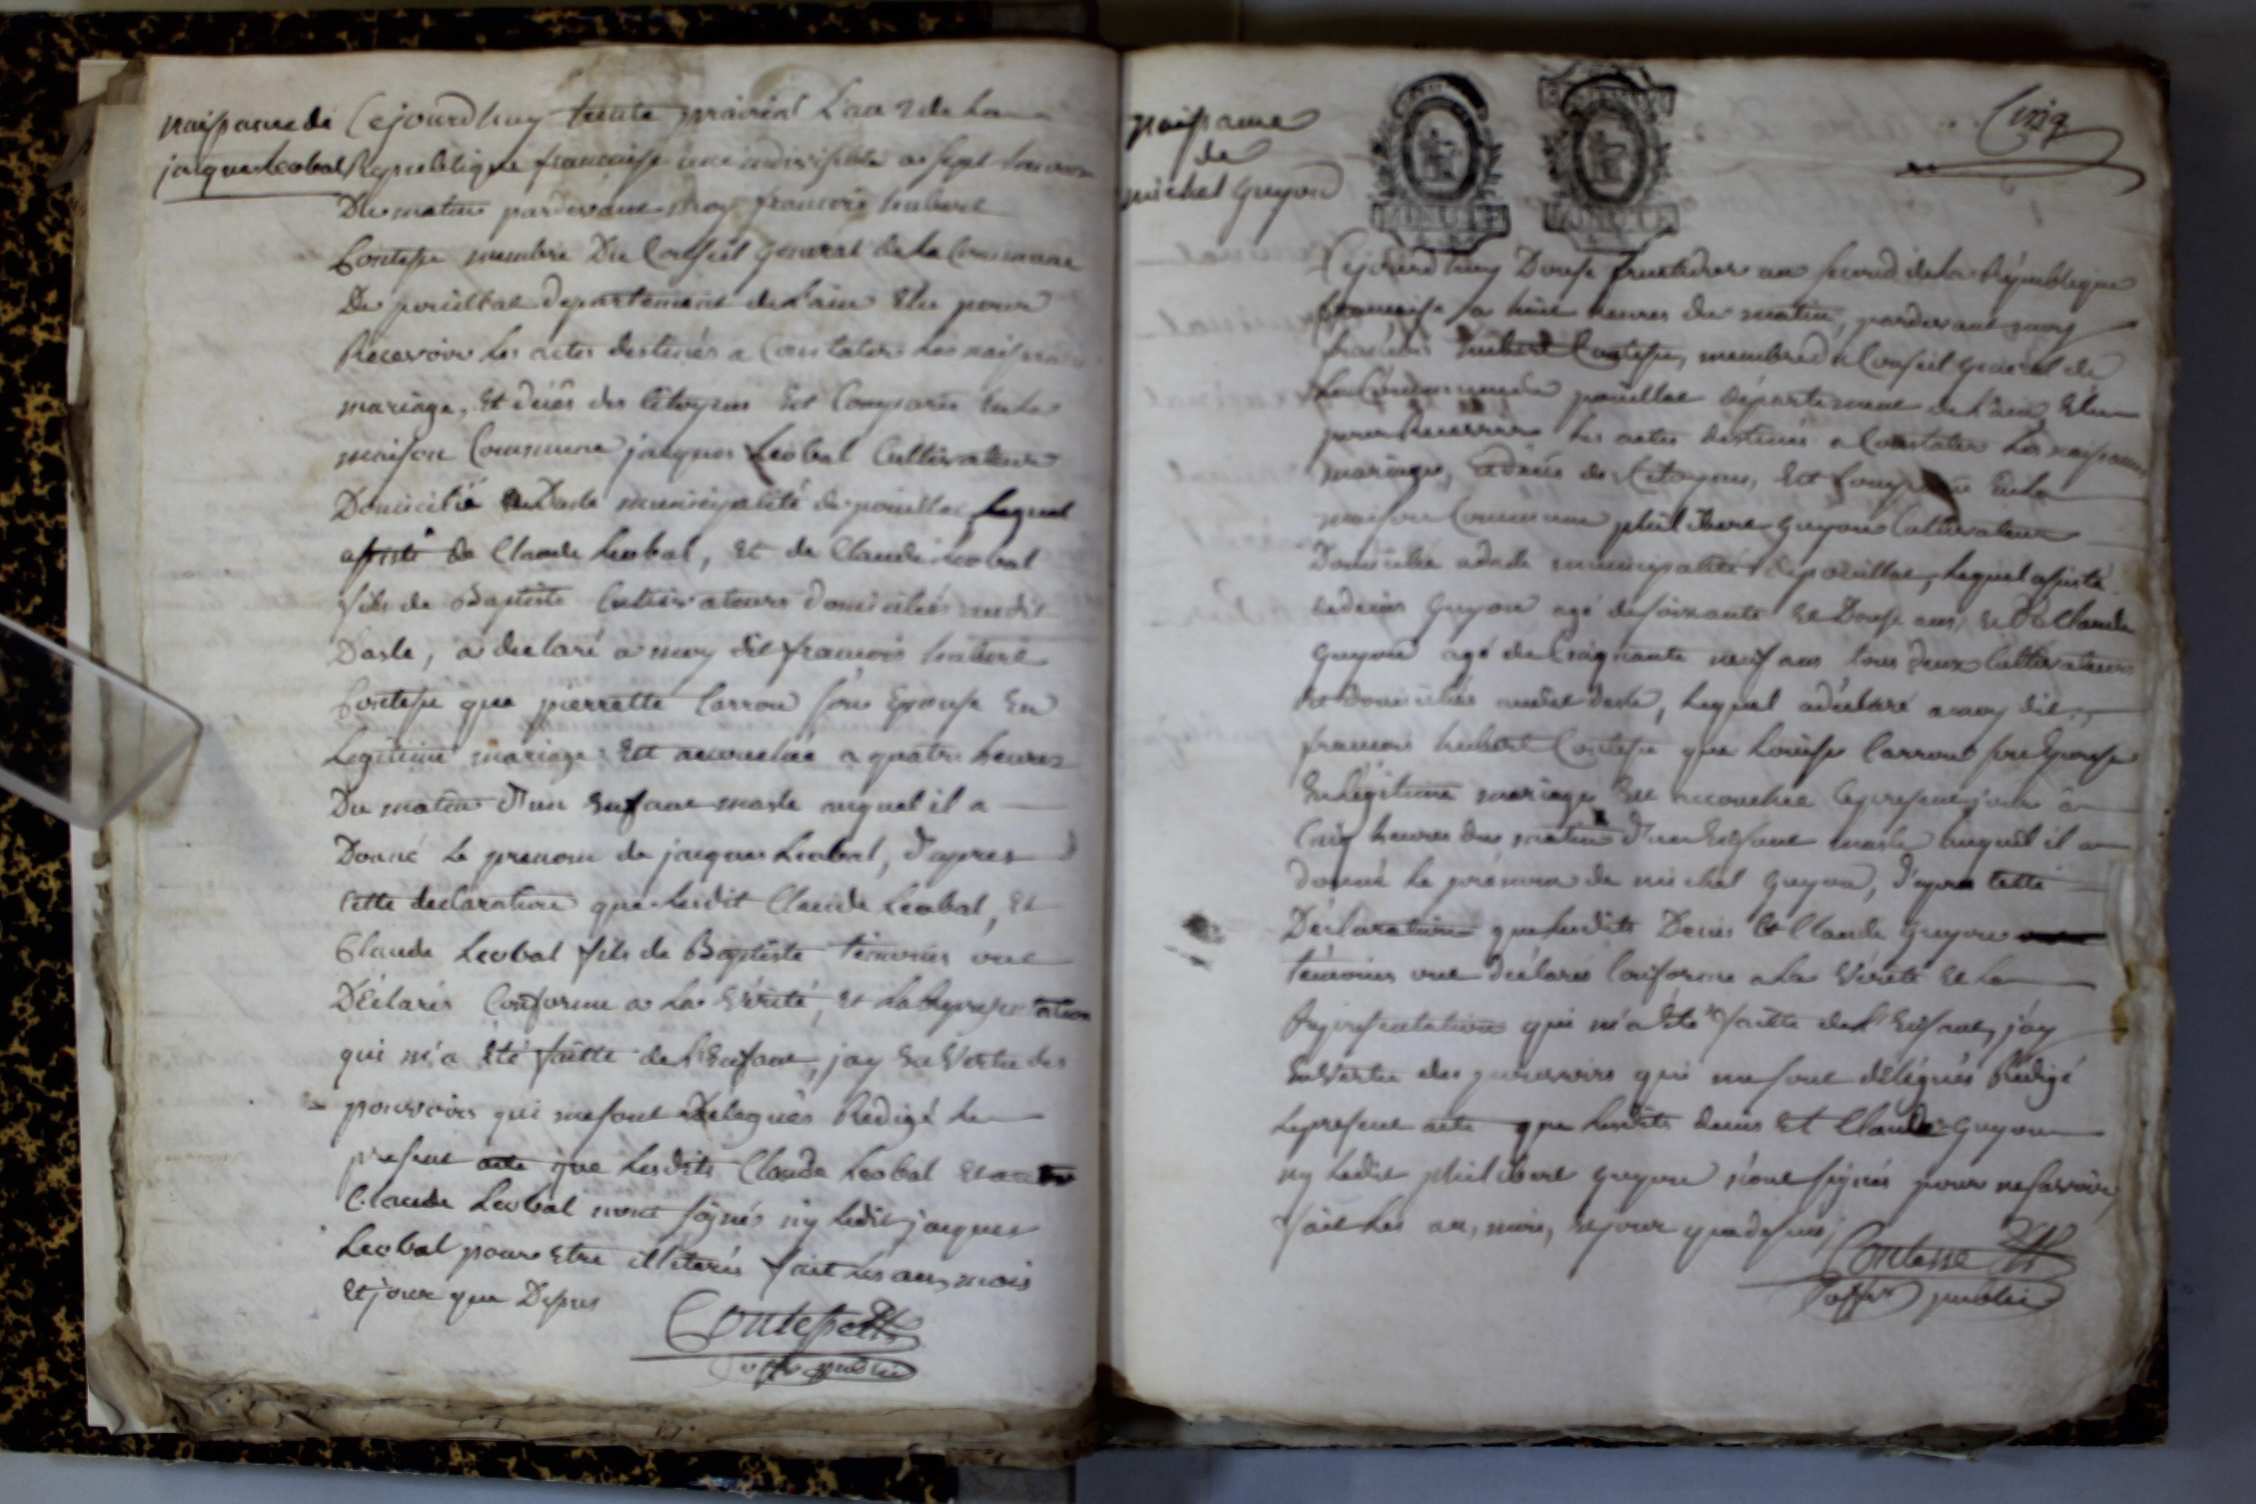 naissance de
jacque Leobal
Cejourdhuy trente prairial L'an 2 de La
Republique francaise une indivisible a sept heures
Du matin pardevant moy francois hubert
Contesse membre Du Conseil general de La Commune
De pouillat departement de L'ain Elu pour
Recevoir Les actes destinés a Constater Les naissances
mariage, Et décés des Citoyens Est Comparu En La
maison Commune jacques Leobal Cultivateur
Domicilié a Dasle municipalité de pouillat, Lequel
assisté de Claude Leobal, Et de Claude Leobal
fils de Baptiste Cultivateurs domiciliés audit
Dasle, a declaré a moy dit francois hubert
Contesse que pierrette Carron son Epouse En
Legitime mariage Est accouchée a quatre heures
Du matin d'un Enfant masle auquel il a
Donné Le prenom de jacques Leobal, d'apres
cette declaration que Lesdit Claude Leobal, Et
Claude Leobal fils de Baptiste témoins ont
Déclarés Conforme a La Vérité, Et La Representation
qui m'a Eté faitte de L'Enfant, jay En Vertu des
pouvoirs qui me sont Delegués Redigé Le
present acte que Lesdits Claude Leobal Et
Claude Leobal n'ont signés ny Ledit jacques
Leobal pour Etre illiterés fait Les an, mois
Et jour que Dessus
Contesse
off. public
naissance
de
michel Guyon
MINUTE
MINUTE
Cinq
Cejourdhuy Douse fructidor an second de La République
francaise a huit heures du matin, pardevant moy
francois hubert Contesse, membre du Conseil general de
La Commune de pouillat département de L'ain Elu
pour Recevoir Les actes destinés a Constater Les naissances
mariages, décés des Citoyens, Est Comparu En La
maison Commune philibert Guyon Cultivateur
Domicilié a dasle municipalité de pouillat, Lequel assisté
de denis Guyon agé de soixante Et Douse ans, Et De Claude
Guyon agé de Cinquante neuf ans tous deux Cultivateurs
Et domiciliés audit dasle, Lequel a déclaré a moy dit
francois hubert Contesse que Louise Carron son Epouse
En Légitime mariage Est accouchée Cejourdhuy a
Cinq heures du matin d'un Enfant masle auquel il a
donné Le prénom de michel Guyon, d'apres cette
Déclaration que Lesdits Denis Et Claude Guyon
témoins ont déclarés Conforme a La Vérité Et La
Representation qui m'a Eté faitte de L'Enfant, jay
En Vertu des pouvoirs qui me sont délégués Rédigé
Le present acte que Lesdits denis Et Claude Guyon
ny Ledit philibert Guyon n'ont signés pour ne savoir,
fait Les an, mois, Et jour que dessus,
Contesse
off. public